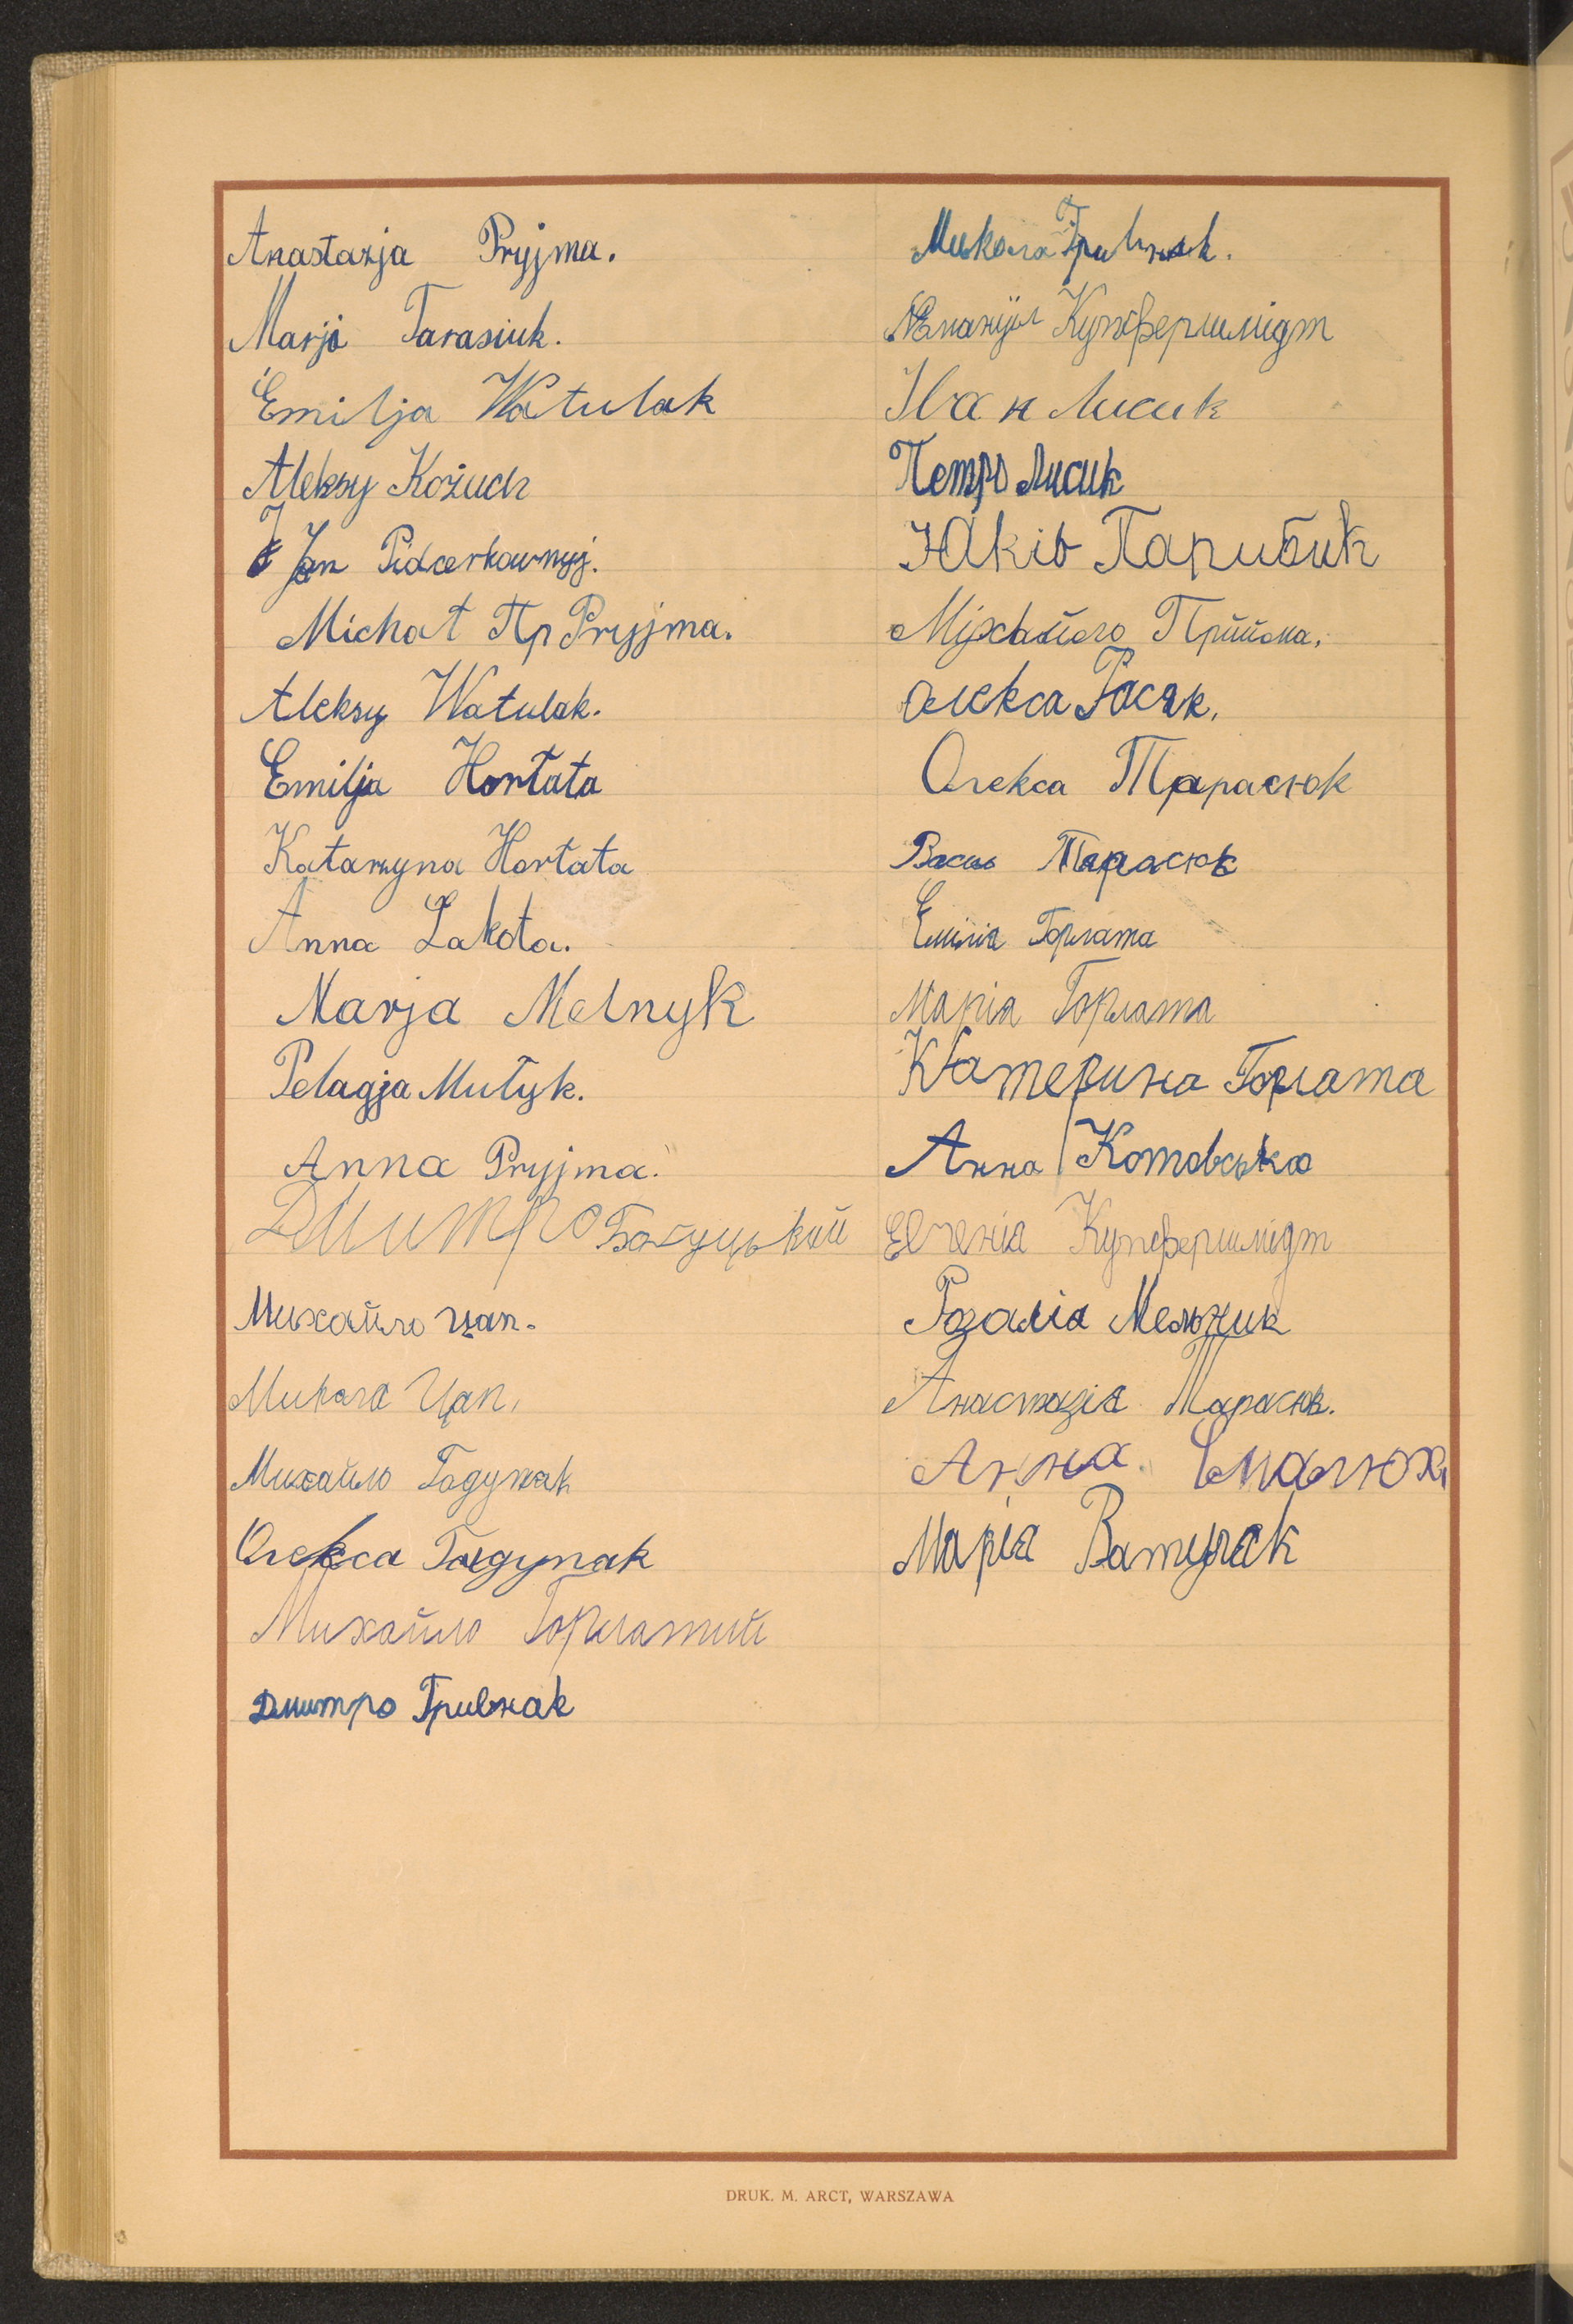 Anastazja Pryjma.
Marja Tarasiuk.
Emilja Watulak
Aleksy Kożuch
Jan Pidcerkownyj.
Michał Пр Pryjma.
Aleksy Watulak.
Emilja Horłata
Katarzyna Horłata
Anna Łakota.
Marja Melnyk
Pelagja Mułyk.
Anna Pryjma.
Дмитро
Михайло Цап.
Микола Цап.
Михайло Годунак
Олекса Годунак
Михайло Горлатий
Дмитро Гривнак
Микола Гривнак.
Емануїл Купфершмідт
Іван Лисик
Петро Лисик
Юаків Парибик
Міхайло Прийма.
Олекса Расяк.
Олекса Тарасюк
Василь Тарасюк
Емілія Горлата
Марія Горлата
Катерина Горлата
Анна Котовська
Евгенія Купфершмідт
Розалія Мельник
Анастазія Тарасюк.
Анна
Марія Ватуляк
DRUK. M. ARCT, WARSZAWA